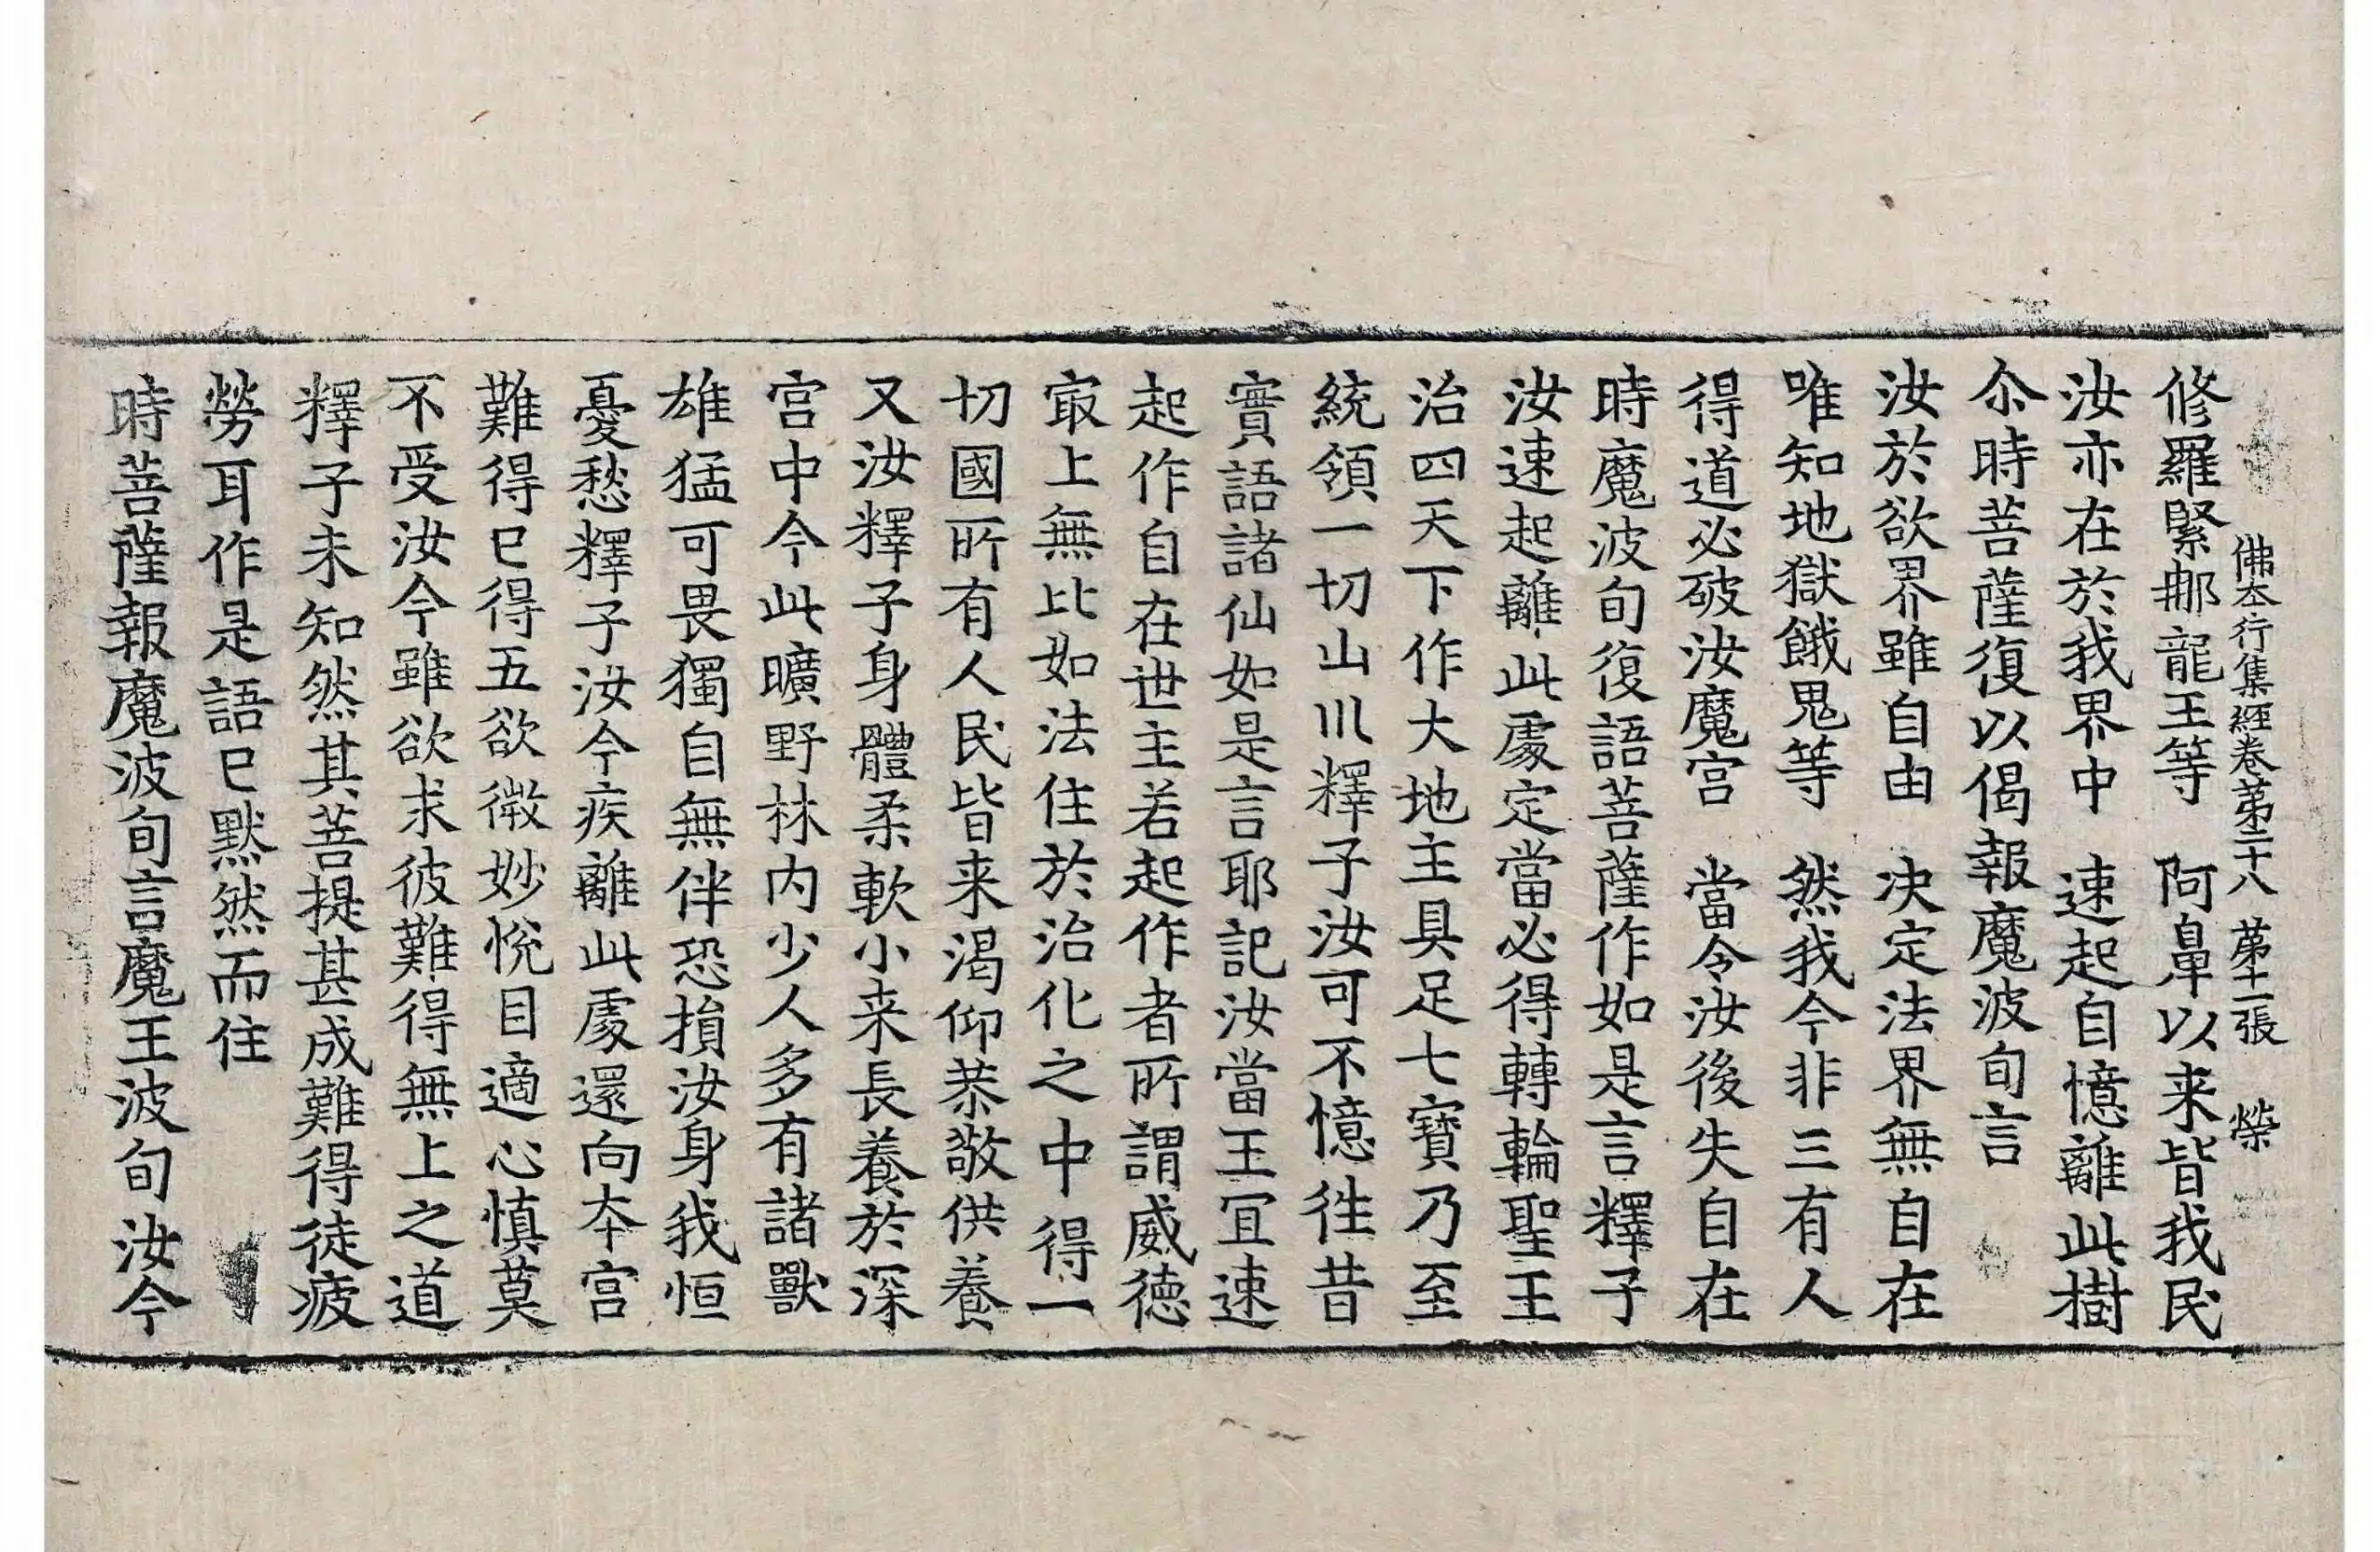 佛本行集經卷第二十八 第十一張 榮
修羅緊那龍王等 阿鼻以来皆我民
汝亦在於我界中 速起自憶離此樹
尒時菩薩復以偈報魔波旬言
汝於欲界雖自由 决定法界無自在
唯知地獄餓鬼等 然我今非三有人
得道必破汝魔宫 當令汝後失自在
時魔波旬復語菩薩作如是言釋子
汝速起離此處定當必得轉輪聖王
治四天下作大地主具足七寶乃至
統領一切山川釋子汝可不憶徃昔
實語諸仙如是言耶記汝當王冝速
起作自在世主若起作者所謂威徳
冣上無比如法住於治化之中得一
切國所有人民皆来渴仰恭敬供養
又汝釋子身體柔軟小来長養於深
宫中今此曠野林内少人多有諸獸
雄猛可畏獨自無伴恐損汝身我恒
憂愁釋子汝今疾離此處還向夲宫
難得已得五欲微妙恱目適心慎莫
不受汝今雖欲求彼難得無上之道
釋子未知然其菩提甚成難得徒疲
勞耳作是語已默然而住
時菩薩報魔波旬言魔王波旬汝今